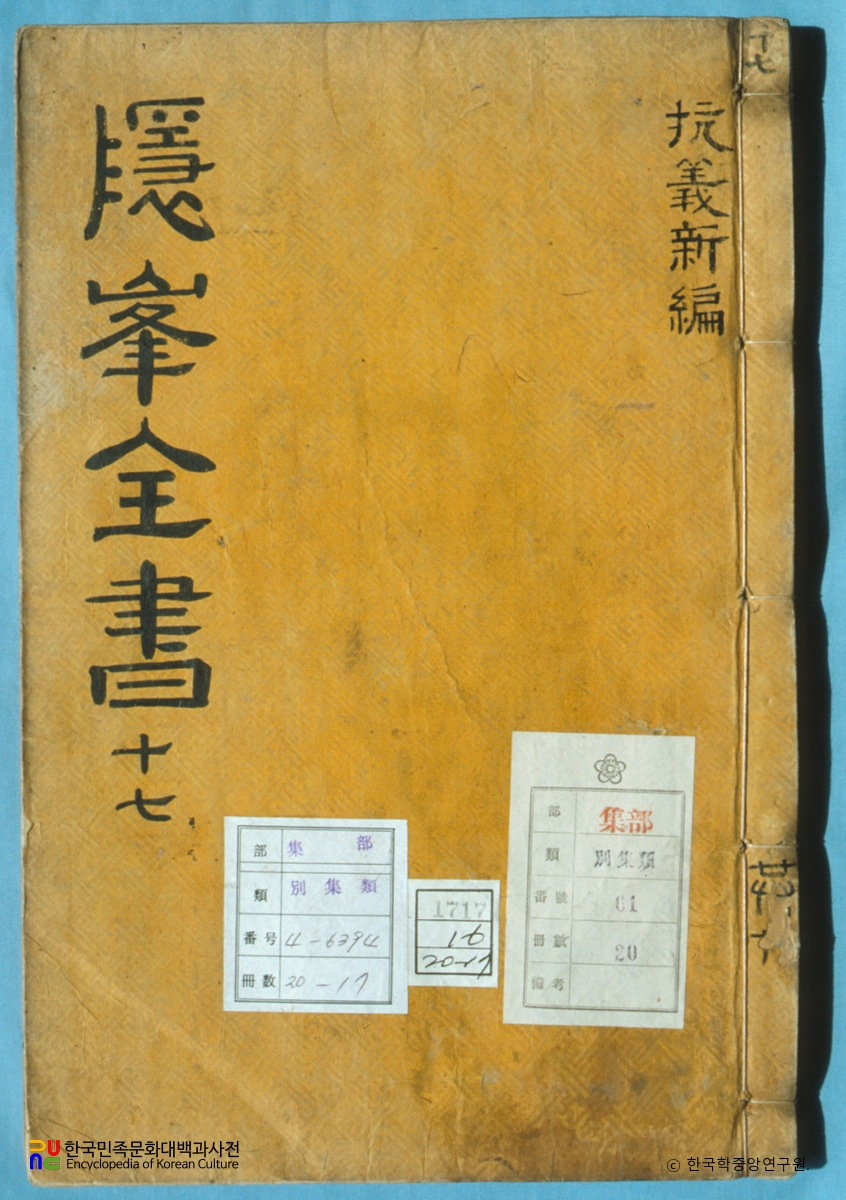 抗義新編
隱峯全書 十七
十七
共廿
部 集部
類 別集類
番号 4-6394
冊數 20-17
1717
16
20-17
部 集部
類 別集類
番號 61
冊數 20
備考
한국민족문화대백과사전
Encyclopedia of Korean Culture
© 한국학중앙연구원